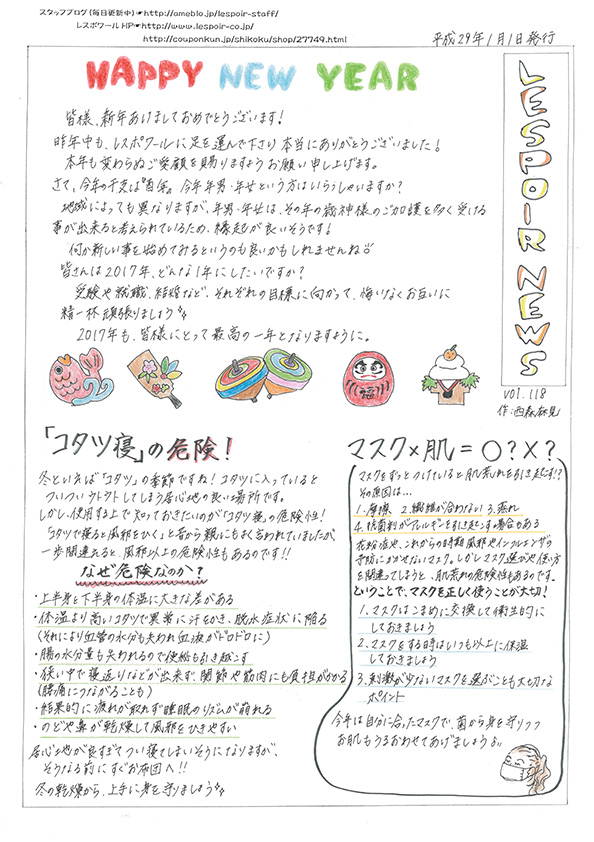 スタッフブログ(毎日更新中)☛http://ameblo.jp/lespoir-staff/
レスポワールHP☛http://www.lespoir-co.jp/
http://couponkun.jp/shikoku/shop/27749.html
平成29年1月1日発行
HAPPY NEW YEAR
LESPOIR NEWS
vol.118
作:西森
皆様、新年あけましておめでとうございます!
昨年中も、レスポワールに足を運んで下さり本当にありがとうございました!
本年も変わらぬご愛顧を賜りますようお願い申し上げます。
さて、今年の干支は『酉年』今年年男・年女という方はいらっしゃいますか?
地域によっても異なりますが、年男・年女は、その年の歳神様のご加護を多く受ける
事が出来ると考えられているため、縁起が良いそうです!
何か新しい事を始めてみるというのも良いかもしれませんね
皆さんは2017年、どんな1年にしたいですか?
受験や就職、結婚など、それぞれの目標に向かって、悔いなくお互いに
精一杯頑張りましょう
2017年も、皆様にとって最高の一年となりますように。
「コタツ寝」の危険!
冬といえば「コタツ」の季節ですね!コタツに入っていると
ついついウトウトしてしまう居心地の良い場所です。
しかし、使用する上で知っておきたいのが「コタツ寝」の危険性!
「コタツで寝ると風邪をひく」と昔から親にもよく言われていましたが
一歩間違えると、風邪以上の危険性もあるのです!!
なぜ危険なのか?
・上半身と下半身の体温に大きな差がある
・体温より高いコタツで異常に汗をかき、脱水症状に陥る
(それにより血管の水分も失われ血液がドロドロに)
・腸の水分量も失われるので便秘も引き起こす
・狭い中で寝返りなどが出来ず、関節や筋肉にも負担がかかる
(腰痛につながることも)
・結果的に疲れが取れず睡眠のリズムが崩れる
・のどや鼻が乾燥して風邪をひきやすい
居心地が良すぎてつい寝てしまいそうになりますが、
そうなる前にすぐお布団へ!!
冬の乾燥から、上手に身を守りましょう
マスク×肌=○?×?
マスクをずっとつけていると肌荒れを引き起こす!?
その原因は…
1.摩擦 2.繊維が合わない 3.蒸れ
4.抗菌剤がアレルギーを引き起こす場合もある
花粉症や、これからの時期風邪やインフルエンザの
予防にかかせないマスク。しかしマスク選びや使い方
を間違ってしまうと、肌荒れの危険性もあるのです。
ということで、マスクを正しく使うことが大切!
1.マスクはこまめに交換して衛生的に
しておきましょう
2.マスクをする時はいつも以上に保湿
しておきましょう
3.刺激が少ないマスクを選ぶことも大切な
ポイント
今年は自分に合ったマスクで、菌から身を守りつつ
お肌もうるおわせてあげましょう